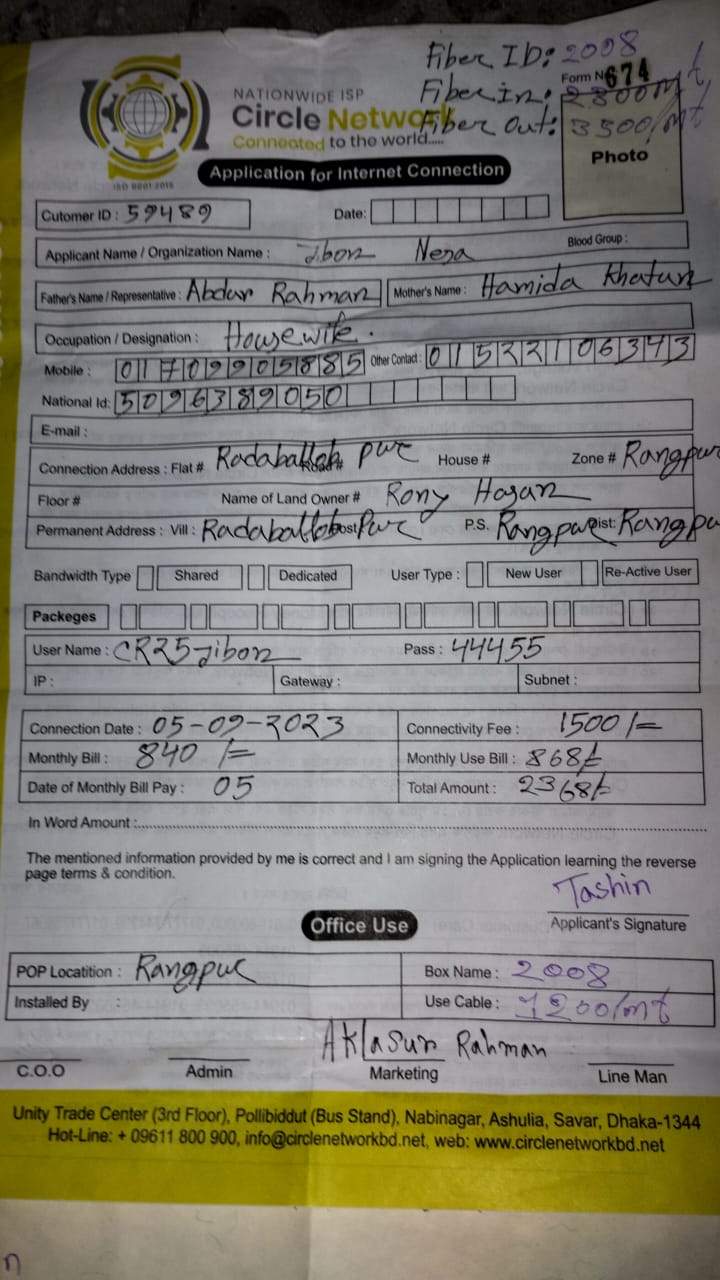 Fiber ID: 2008
Form No 674
Fiber in: 2300/mt
Fiber out: 3500/mt
NATIONWIDE ISP
Circle Network
Connected to the world.....
ISO 9001:2015
Photo
Application for Internet Connection
Cutomer ID : 59489 Date:
Applicant Name / Organization Name : Jibon Nesa Blood Group :
Father's Name / Representative : Abdur Rahman Mother's Name : Hamida Khatun
Occupation / Designation : Housewife.
Mobile : 01709905885 Other Contact : 01522106343
National Id: 5096389050
E-mail :
Connection Address : Flat # Radaballob pur Road# House # Zone # Rangpur
Floor # Name of Land Owner # Rony Hasan
Permanent Address : Vill : Radaballob Post: Pur P.S. Rangpur Dist: Rangpu
Bandwidth Type Shared Dedicated User Type : New User Re-Active User
Packeges
User Name : CR25jibon Pass : 44455
IP : Gateway : Subnet :
Connection Date : 05-09-2023 Connectivity Fee : 1500/=
Monthly Bill : 840 /= Monthly Use Bill : 868/=
Date of Monthly Bill Pay : 05 Total Amount : 2368/=
In Word Amount :
The mentioned information provided by me is correct and I am signing the Application learning the reverse
page terms & condition.
Tashin
Applicant's Signature
Office Use
POP Locatition : Rangpur Box Name : 2008
Installed By : Use Cable : 1200/mt
Aklasur Rahman
C.O.O Admin Marketing Line Man
Unity Trade Center (3rd Floor), Pollibiddut (Bus Stand), Nabinagar, Ashulia, Savar, Dhaka-1344
Hot-Line: + 09611 800 900, info@circlenetworkbd.net, web: www.circlenetworkbd.net